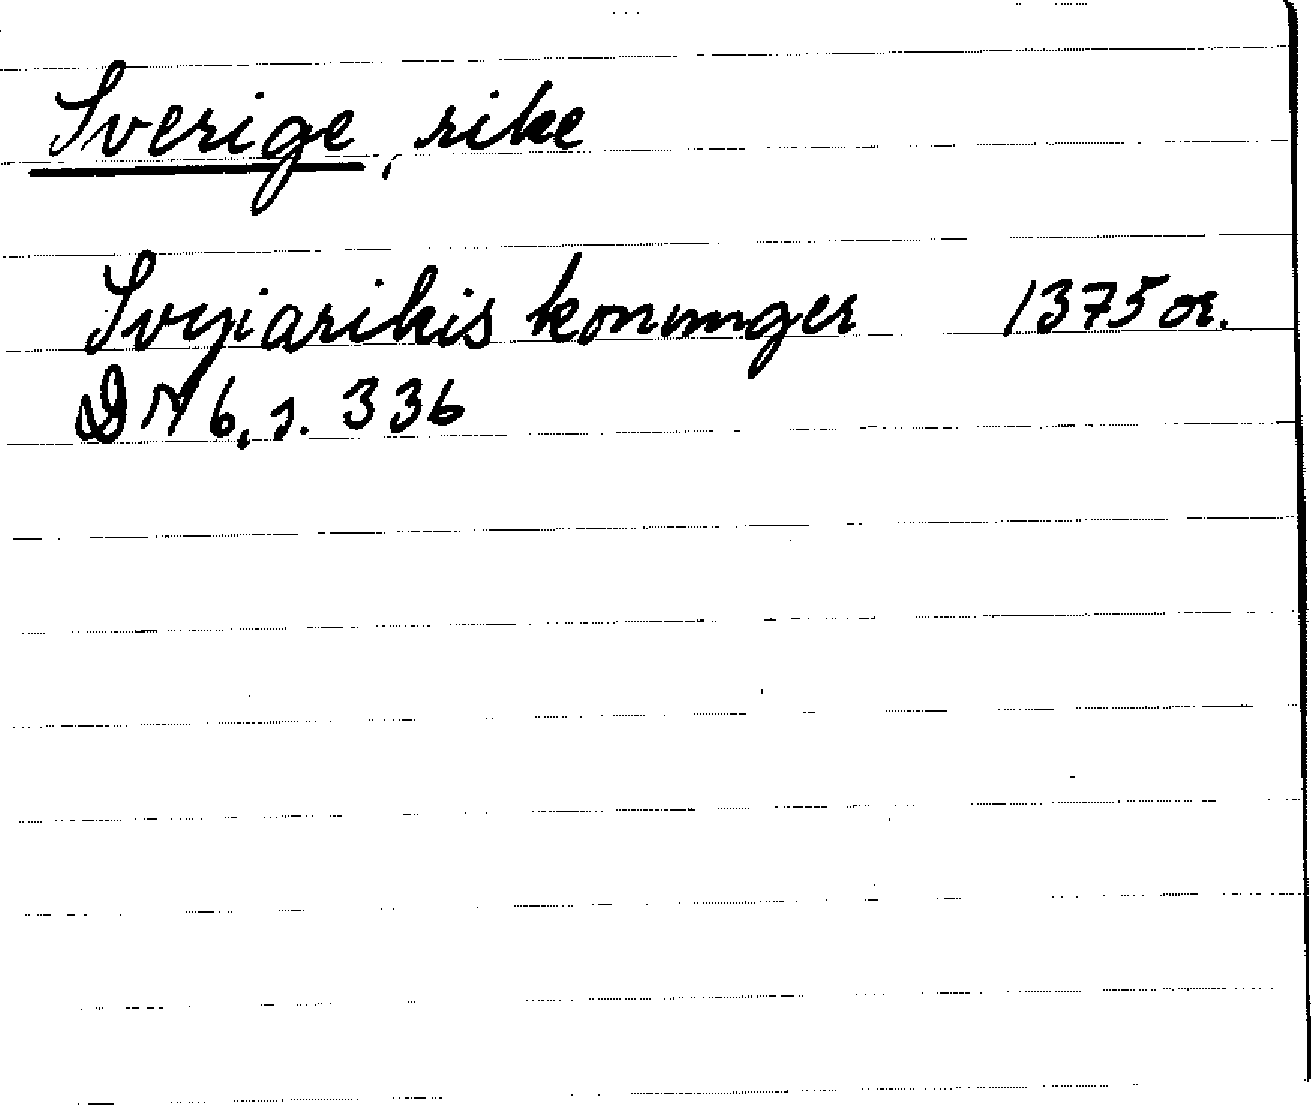 Sverige, rike
Svyiarikis konunger 1375 or.
DN 6, s. 336